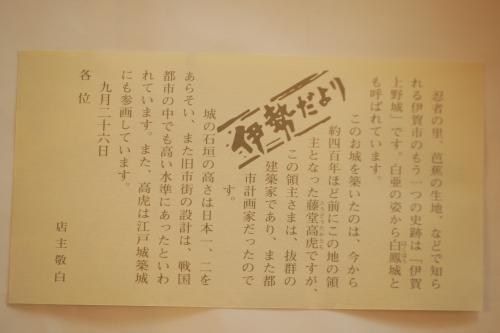 忍者の里、芭蕉の生地、などで知ら
れる伊賀市のもう一つの史跡は「伊賀
上野城」です。白亜の姿から白鳳城と
も呼ばれています。
このお城を築いたのは、今から
約四百年ほど前にこの地の領
主となった藤堂高虎ですが、
この領主さまは、抜群の
建築家であり、また都
市計画家だったので
す。
伊勢だより
城の石垣の高さは日本一、二を
あらそい、また旧市街の設計は、戦国
都市の中でも高い水準にあったといわ
れています。また、高虎は江戸城築城
にも参画しています。
九月二十六日
店主敬白
各位